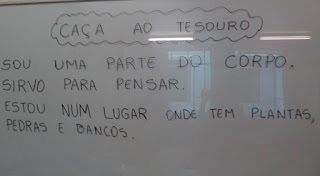 CAÇA AO TESOURO
SOU UMA PARTE DO CORPO.
SIRVO PARA PENSAR.
ESTOU NUM LUGAR ONDE TEM PLANTAS,
PEDRAS E BANCOS.